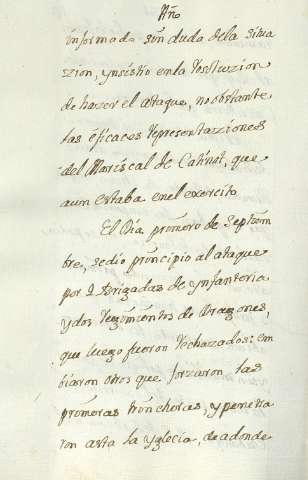 Año
informado sin duda de la situa
zion, ynsistio en la
de hazer el ataque, no obstante
las eficaces representaziones
del Mariscal de Catinat, que
aun estaba en el exercito
El Dia primero de Septiem
bre, se dio principio al ataque
por 2 Brigadas de ynfanteria
y dos regimientos de Dragones,
que luego fueron rechazados: em
biaron otros que forzaron las
primeras trincheras, y penetra
ron asta la yglecia, de adonde